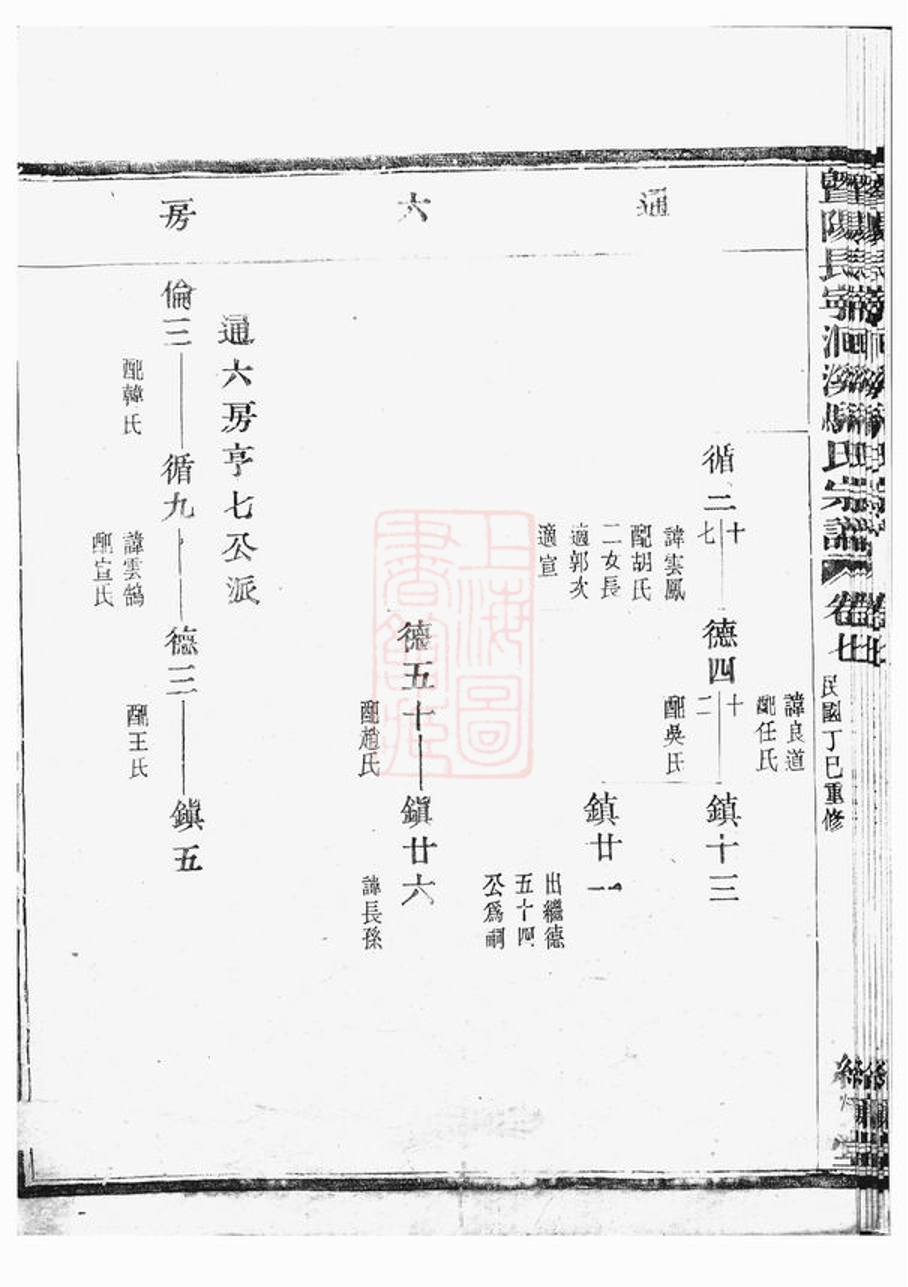 暨陽長寧洄溪馬氏宗譜
卷七
民國丁巳重修
通六房
循二十七
諱雲鳳
配胡氏
二女長
適郭次
適宣
諱良道
配任氏
德四十二
配吳氏
鎮十三
鎮廿一
出繼德
五十四
公爲嗣
德五十一
配趙氏
鎮廿六
諱長孫
通六房亨七公派
倫三
配韓氏
循九
諱雲鵠
配宣氏
德三
配王氏
鎮五
上海圖
書館藏